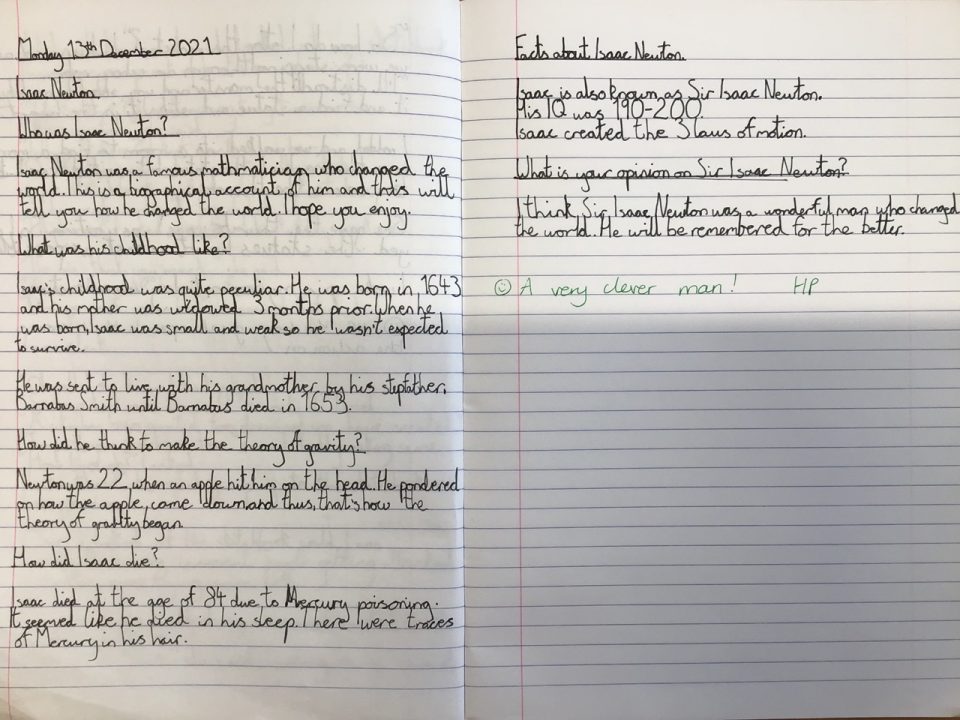 Monday 13th December 2021
Isaac Newton
Who was Isaac Newton?
Isaac Newton was a famous mathmatician who changed the
world. This is a biographical account of him and this will
tell you how he changed the world. I hope you enjoy.
What was his childhood like?
Isaac's childhood was quite peculiar. He was born in 1643
and his mother was widowed 3 months prior. When he
was born, Isaac was small and weak so he wasn't expected
to survive.
He was sent to live with his grandmother by his stepfather,
Barnabas Smith until Barnabus died in 1653.
How did he think to make the theory of gravity?
Newton was 22 when an apple hit him on the head. He pondered
on how the apple came down and thus, that's how the
theory of gravity began
How did Isaac die?
Isaac died at the age of 84 due to Mercury poisoning.
It seemed like he died in his sleep. There were traces
of Mercury in his hair.
Facts about Isaac Newton.
Isaac is also known as Sir Isaac Newton.
His IQ was 190-200.
Isaac created the 3 laws of motion.
What is your opinion on Sir Isaac Newton?
I think Sir Isaac Newton was a wonderful man who changed
the world. He will be remembered for the better.
☺ A very clever man! HP